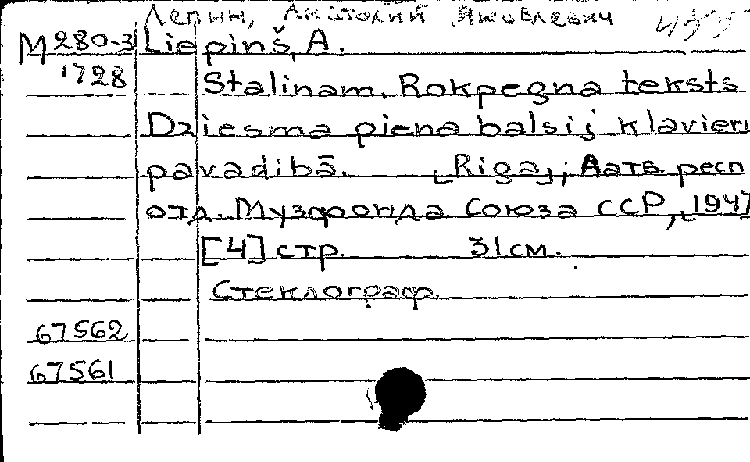 Лепин, Анатолий Яковлевич
М280-3 Liepinš, A.
1728 Stalinam. Rokpegna teksts
Dziesma piena balsij klavieru
pavadibā. [Riga], Латв. респ
отд. Музфонда Союза ССР, [1947
[4] стр. 31см.
Стеклограф.
67562
67561